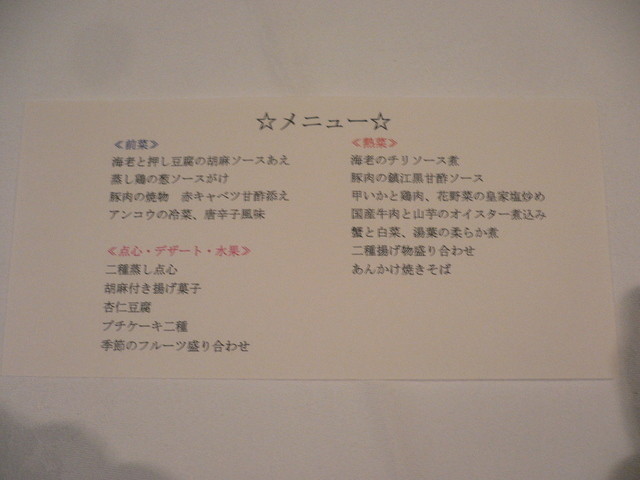 ☆メニュー☆
≪前菜≫
海老と押し豆腐の胡麻ソースあえ
蒸し鶏の葱ソースがけ
豚肉の焼物　赤キャベツ甘酢添え
アンコウの冷菜、唐辛子風味
≪点心・デザート・水果≫
二種蒸し点心
胡麻付き揚げ菓子
杏仁豆腐
プチケーキ二種
季節のフルーツ盛り合わせ
≪熱菜≫
海老のチリソース煮
豚肉の鎮江黒甘酢ソース
甲いかと鶏肉、花野菜の皇家塩炒め
国産牛肉と山芋のオイスター煮込み
蟹と白菜、湯葉の柔らか煮
二種揚げ物盛り合わせ
あんかけ焼きそば